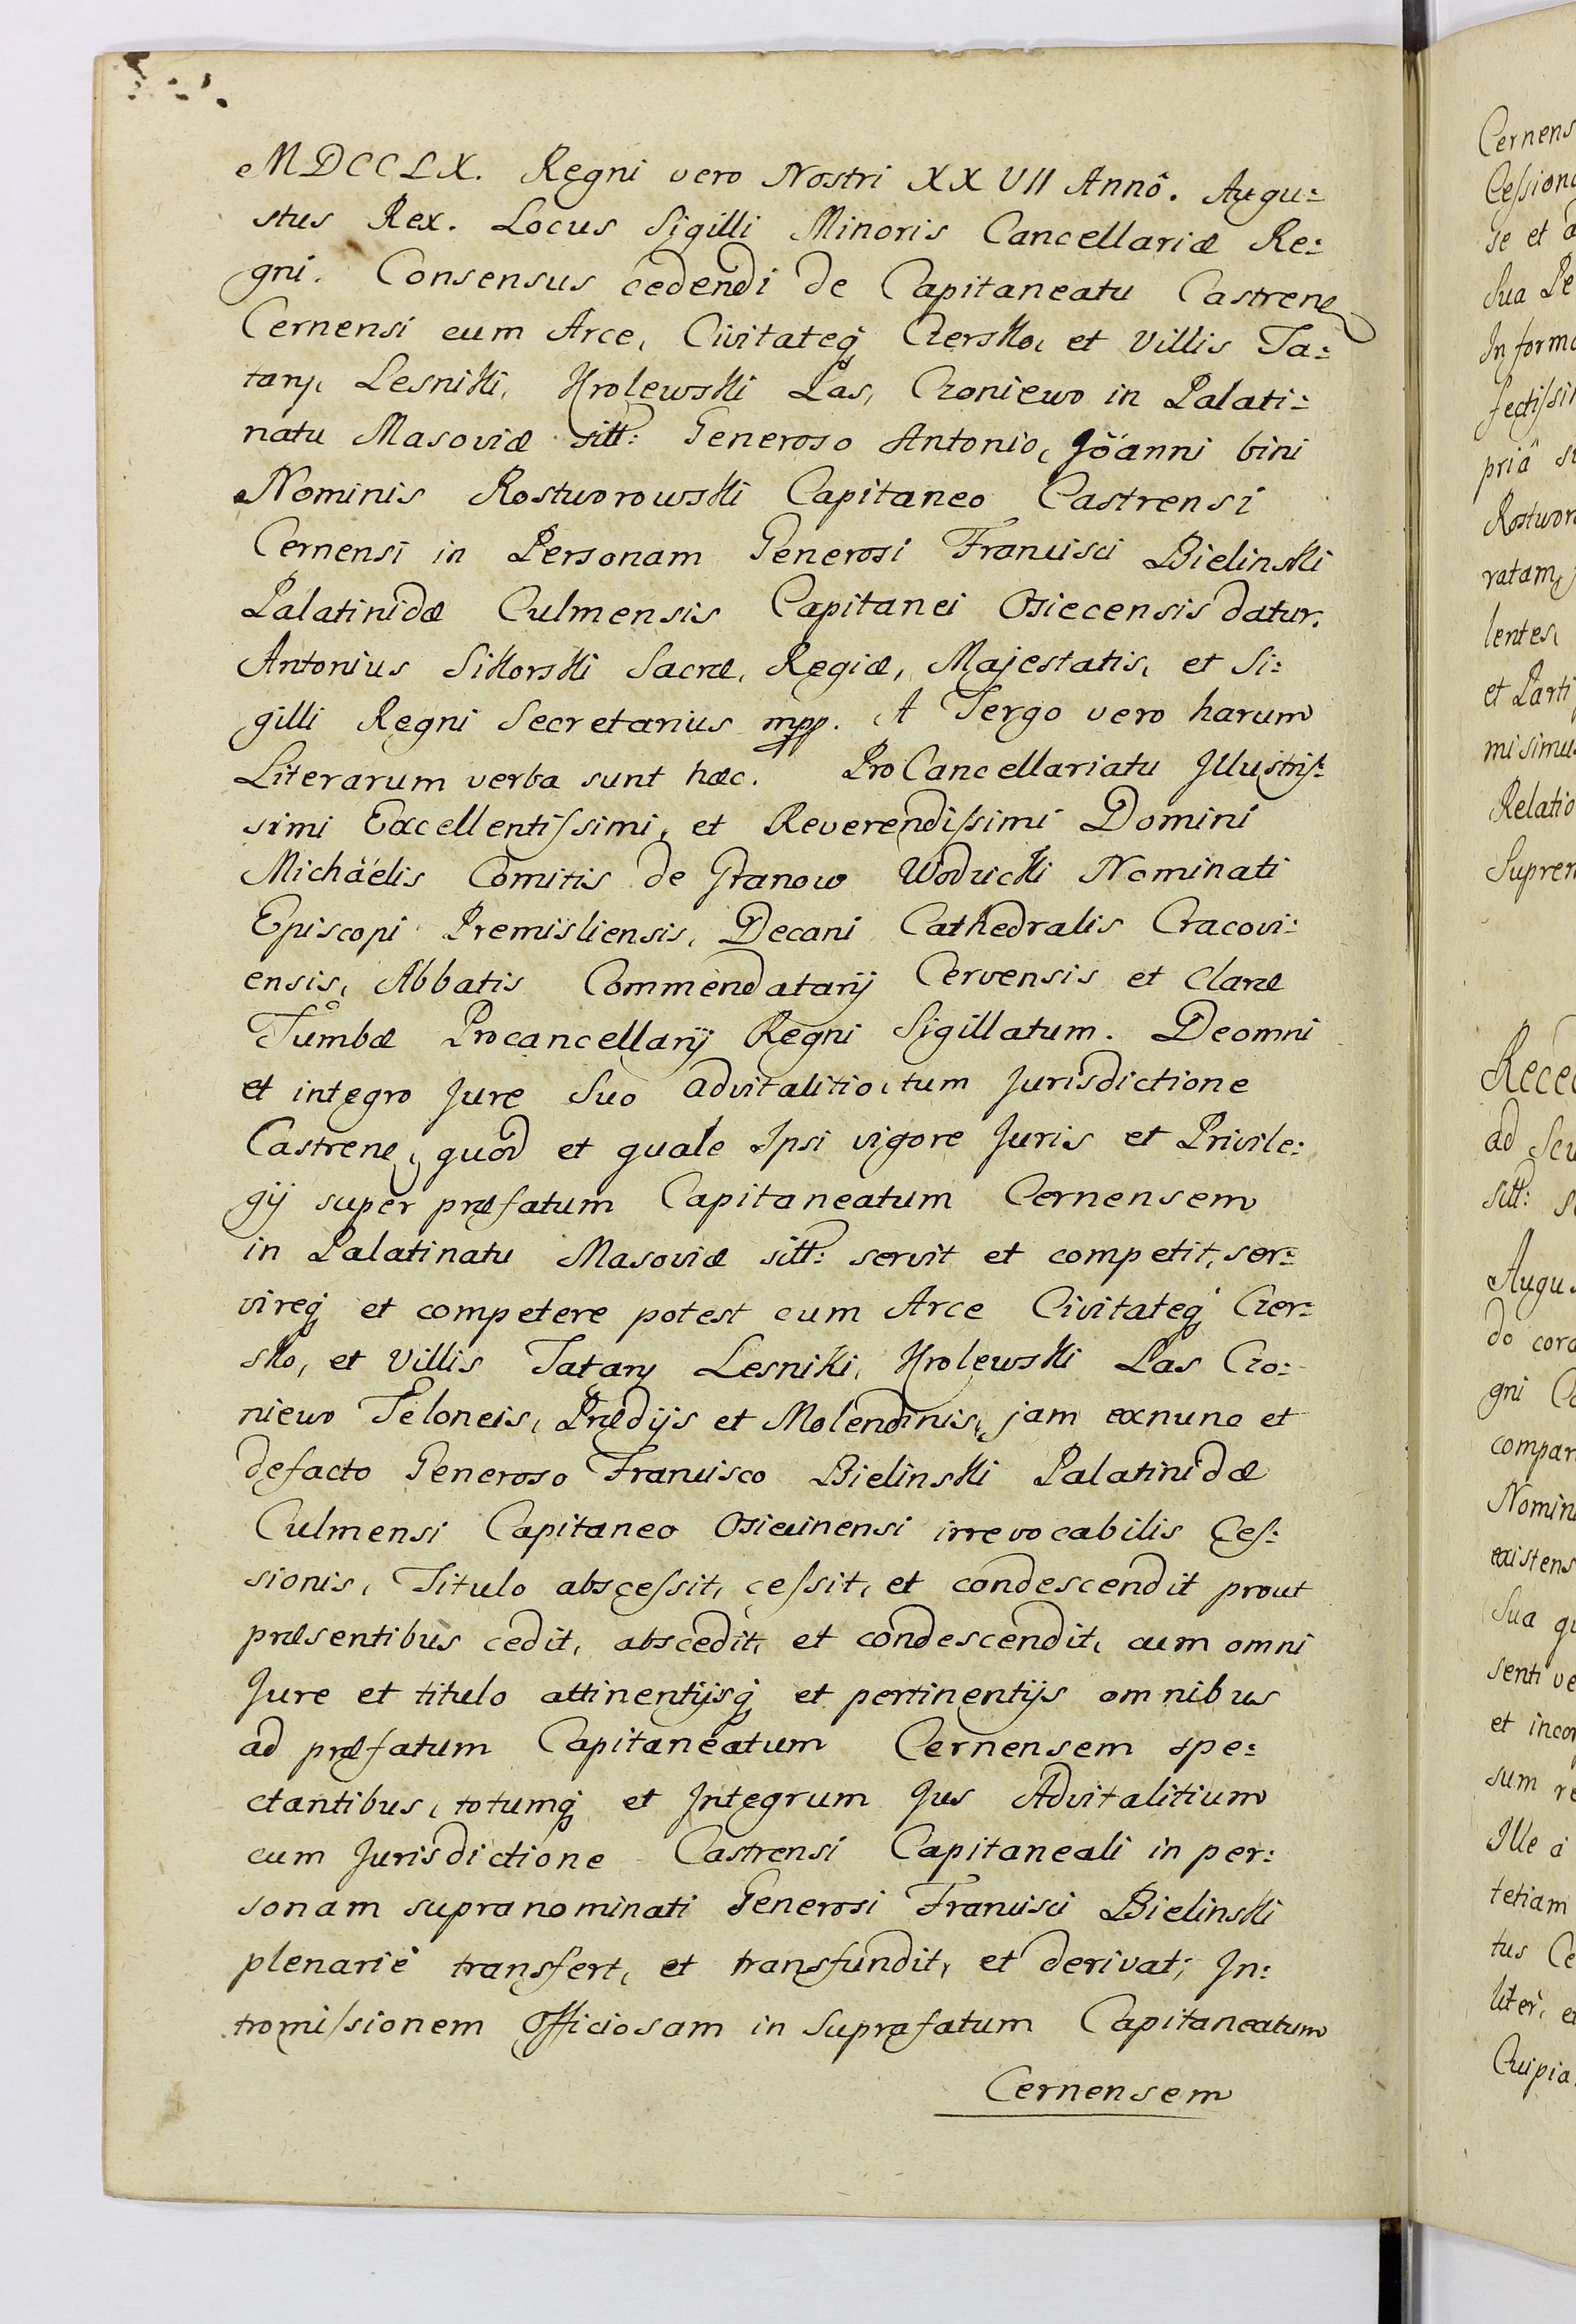 MDCCLX. Regni vero Nostri XXVII Annô. Augu:
stus Rex. Locus Sigilli Minoris Cancellariæ Re:
gni. Consensus cedendi de Capitaneatu Castren
Cernensi cum Arce, Civitateq Czersko, et Villis Ta:
tary, Lesniki, Krolewski Las, Czoniewo in Palati:
natu Masoviæ sitt: Generoso Antonio, Jöanni bini
Nominis Rostworowski Capitaneo Castrensi
Cernensi in Personam Generosi Francisci Bielinski
Palatinidæ Culmensis Capitanei Osiecensis datur.
Antonius Sikorski Sacræ, Regiæ, Majestatis, et Si:
gilli Regni Secretarius mpp. A Tergo vero harum
Literarum verba sunt hæc. ProCancellariatu Jllustris:
simi Excellentissimi, et Reverendissimi Domini
Michäelis Comitis de Granow Wodzicki Nominati
Episcopi Premisliensis, Decani Cathedralis Cracovi:
ensis, Abbatis Commendatarij Cervensis et Claræ
Tumbæ Procancellarij Regni Sigillatum. Deomni
et integro Jure Suo advitalitio, tum Jurisdictione
Castren, quod et quale Jpsi vigore Juris et Privile:
gij super præfatum Capitaneatum Cernensem
in Palatinatu Masoviæ sitt: servit et competit, ser:
vireq et competere potest cum Arce Civitateq Czer:
sko, et Villis Tatary Lesniki, Krolewski Las Czo:
niewo Teloneis, Prædijs et Molendinis, jam exnunc et
defacto Generoso Francisco Bielinski Palatinidæ
Culmensi Capitaneo Osiecinensi irrevocabilis Ces:
sionis, Titulo abscessit, cessit, et condescendit prout
præsentibus cedit, abscedit, et condescendit, cum omni
Jure et titulo attinentijsq et pertinentijs omnibus
ad præfatum Capitaneatum Cernensem spe:
ctantibus, totumq et Jntegrum Jus Advitalitium
cum Jurisdictione Castrensi Capitaneali in per:
sonam supranominati Generosi Francisci Bielinski
plenariè transfert, et transfundit, et derivat; Jn:
tromissionem Officiosam in Suprafatum Capitaneatum
Cernensem